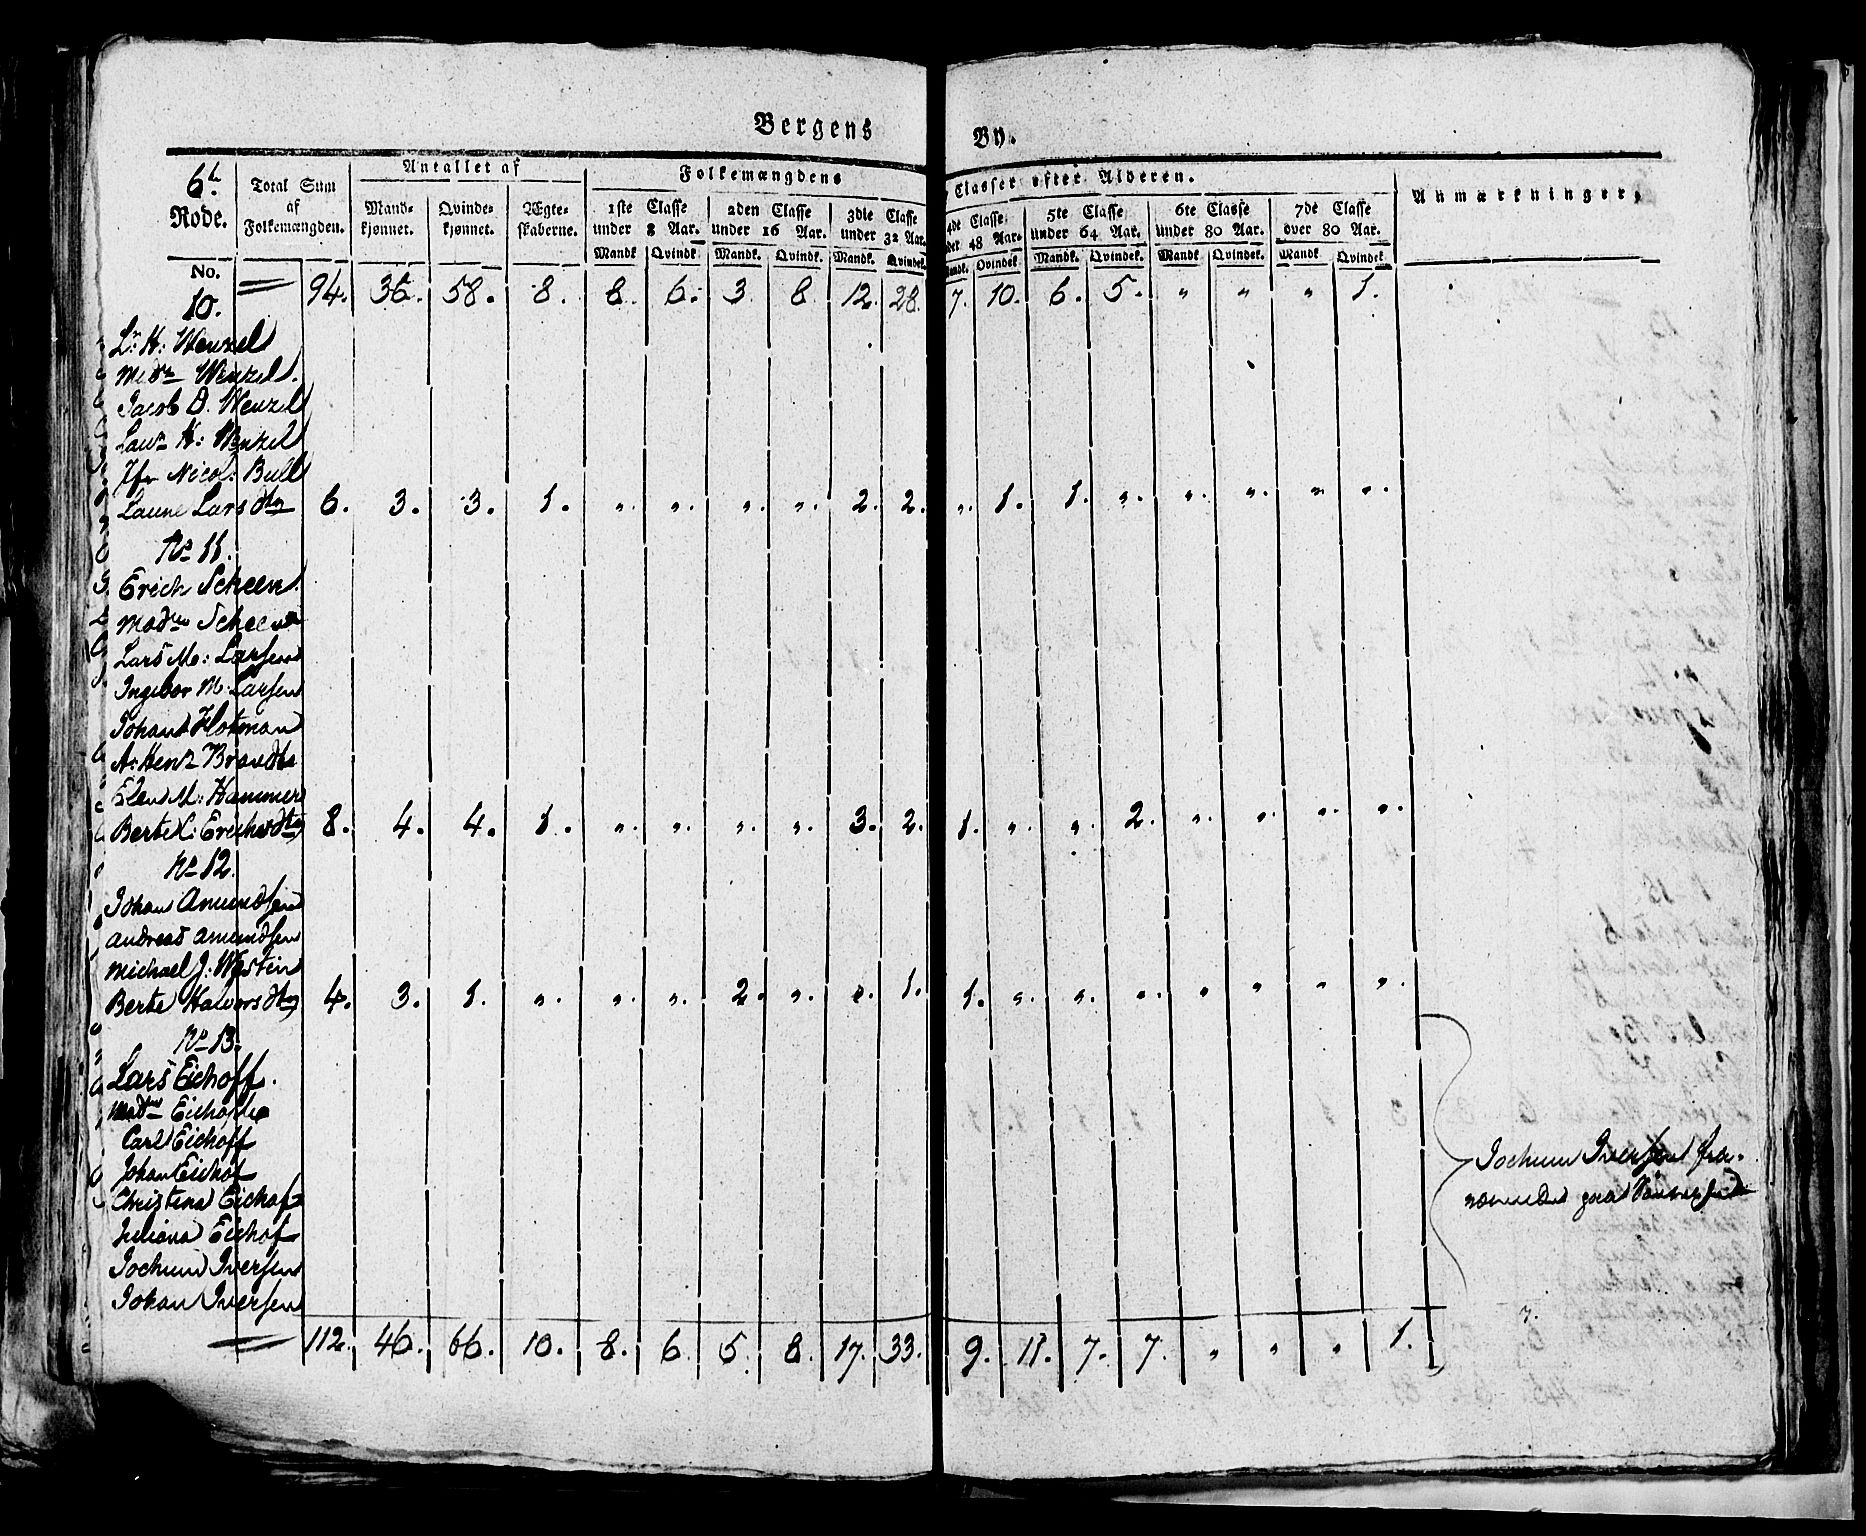 Bergens By.
6te Rode.
Total Sum af Folkemængden.
Antallet af
Mandkjønnet. Qvindekjønnet. Ægteskaberne.
Folkemængdens Classer efter Alderen.
1ste Classe under 8 Aar. 2den Classe under 16 Aar. 3die Classe under 32 Aar. 4de Classe under 48 Aar. 5te Classe under 64 Aar. 6te Classe under 80 Aar. 7de Classe over 80 Aar.
Mandk. Qvindek. Mandk. Qvindek. Mandk. Qvindek. Mandk. Qvindek. Mandk. Qvindek. Mandk. Qvindek. Mandk. Qvindek.
Anmærkninger.
No. 10. 94. 36. 58. 8. 8. 6. 3. 8. 12. 28. 7. 10. 6. 5. " " " 1.
L: H: Wenzel
Mdm Wenzel.
Jacob D. Wenzel
Laur H: Wenzel
Jfr Nicol: Bull
Laune Larsdtr 6. 3. 3. 1. " " " " 2. 2. " 1. 1. " " " " "
No 11.
Erich Scheen.
Madme Scheen
Lars M: Larsen
Ingebor M: Larsen
Johan Flotman
A: Henr Brandt
Elen M: Hammer
Berte C: Erichsdtr 8. 4. 4. 1. " " " " 3. 2. 1. " " 2. " " " "
No 12.
Johan Amundsen
Andreas Amundsen
Michael J: Westin
Berte Halvorsdtr 4. 3. 1. " " " 2. " " 1. 1. " " " " " " "
No 13.
Lars Eichoff.
Madme Eichoff
Carl Eichoff
Johan Eichof
Christina Eichof
Juliana Eichof
Jochum Iversen
Johan Iversen
Jochum Iversen fra-
112. 46. 66. 10. 8. 6. 5. 8. 17. 33. 9. 11. 7. 7. " " " 1.